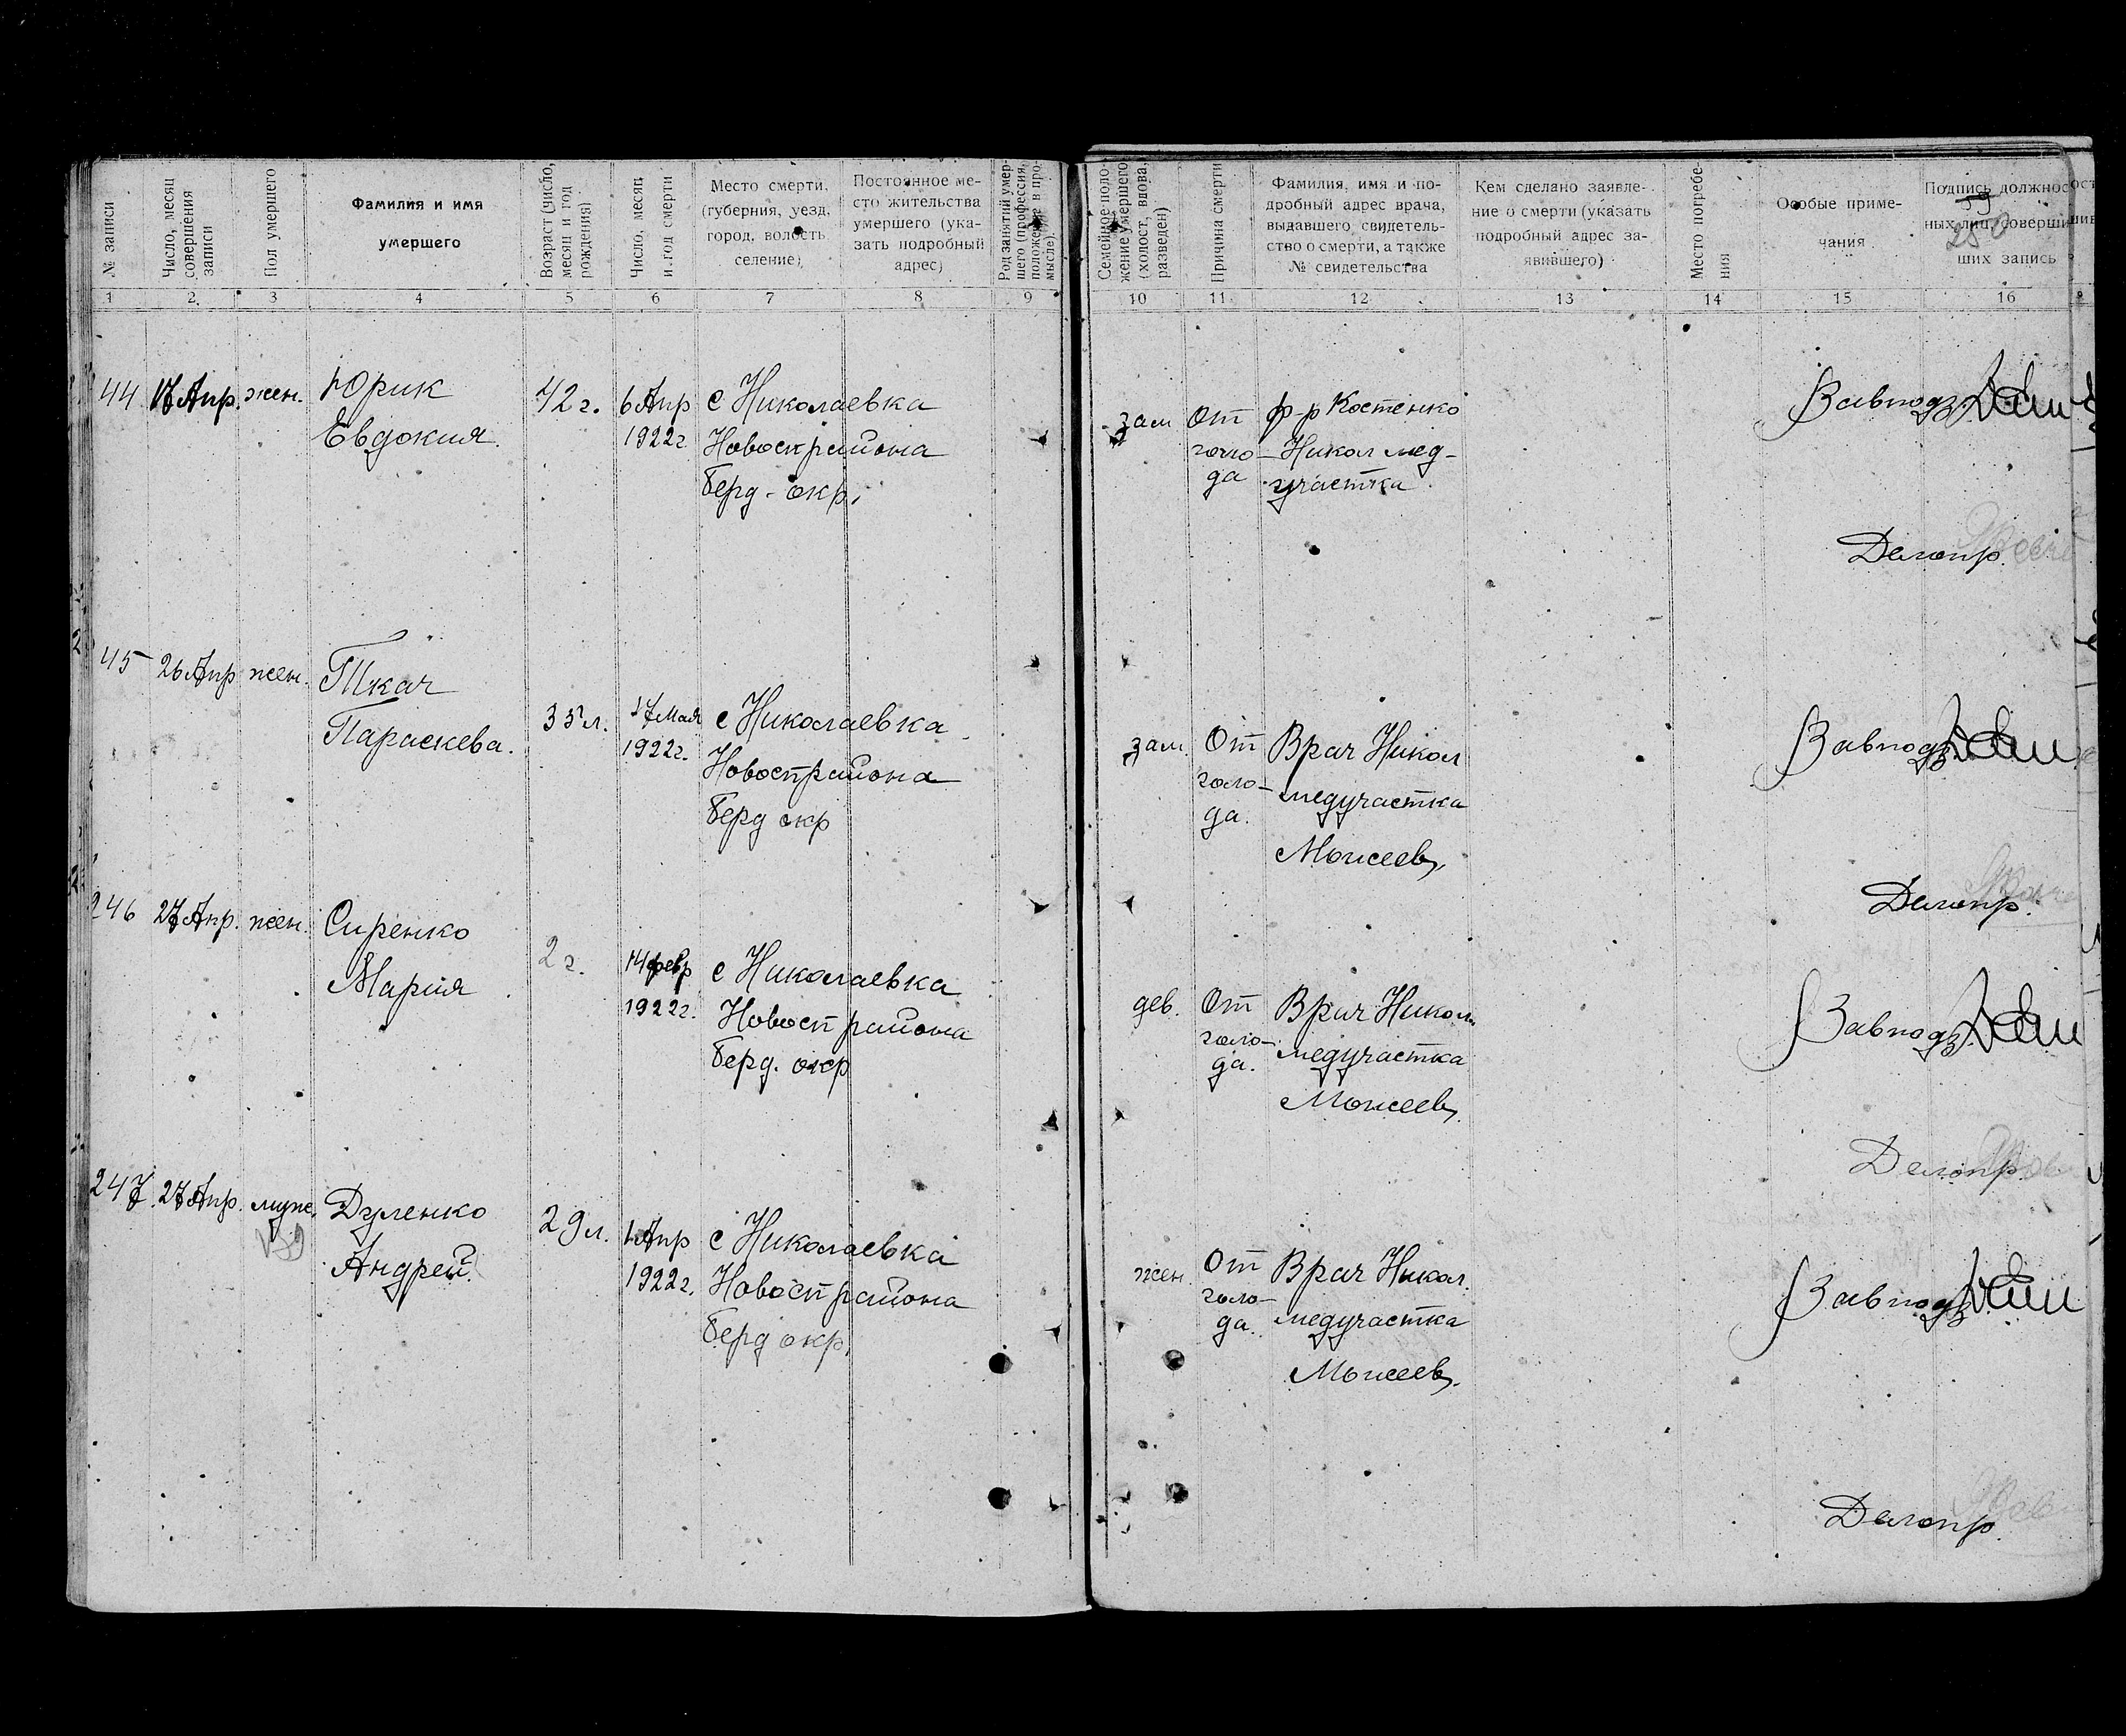 № записи
Число, месяц
совершения
записи
Пол умершего
Фамилия и имя
умершего
Возраст (число,
месяц и год
рождения)
Число, месяц
и год смерти
Место смерти,
(губерния, уезд,
город, волость
селение)
Постоянное ме-
сто жительства
умершего (ука-
зать подробный
адрес)
Род занятий умер-
шего (профессия,
положение в про-
мысле).
Семейное поло-
жение умершего
(холост, вдова,
разведен)
Причина смерти
Фамилия, имя и по-
дробный адрес врача,
выдавшего свидетель-
ство о смерти, а также
№ свидетельства
Кем сделано заявле-
ние о смерти (указать
подробный адрес за-
явившего)
Место погребе-
ния
Особые приме-
чания
Подпись должнос
ных лиц, соверши
ших запись
1 2 3 4 5 6 7 8 9 10 11 12 13 14 15 16
44 17 Апр. жен. Юрик
Евдокия.
42 г. 6 Апр
1922г.
с Николаевка
Новосп района
Берд - окр.
зам От
голо-
да
ф-р Костенко
Никол мед-
участка
Завподз.
Делопр.
45 26 Апр жен. Ткач
Параскева.
35 л. 17 Мая
1922г.
с Николаевка
Новосп района
Берд окр
зам. От
голо-
да.
Врач Никол
медучастка
Моисеев.
Завподз.
Делопр.
246 27 Апр. жен. Сиренко
Мария
2 г. 14 февр
1922г.
с Николаевка
Новосп района
Берд. окр
дев. От
голо-
да.
Врач Никол.
медучастка
Моисеев.
Завподз.
Делопр.
247. 27 Апр. муж. Дуленко
Андрей.
29 л. 1 Апр
1922г.
с Николаевка
Новосп района
Берд окр.
жен. От
голо-
да.
Врач Никол.
медучастка
Моисеев.
Завподз.
Делопр.